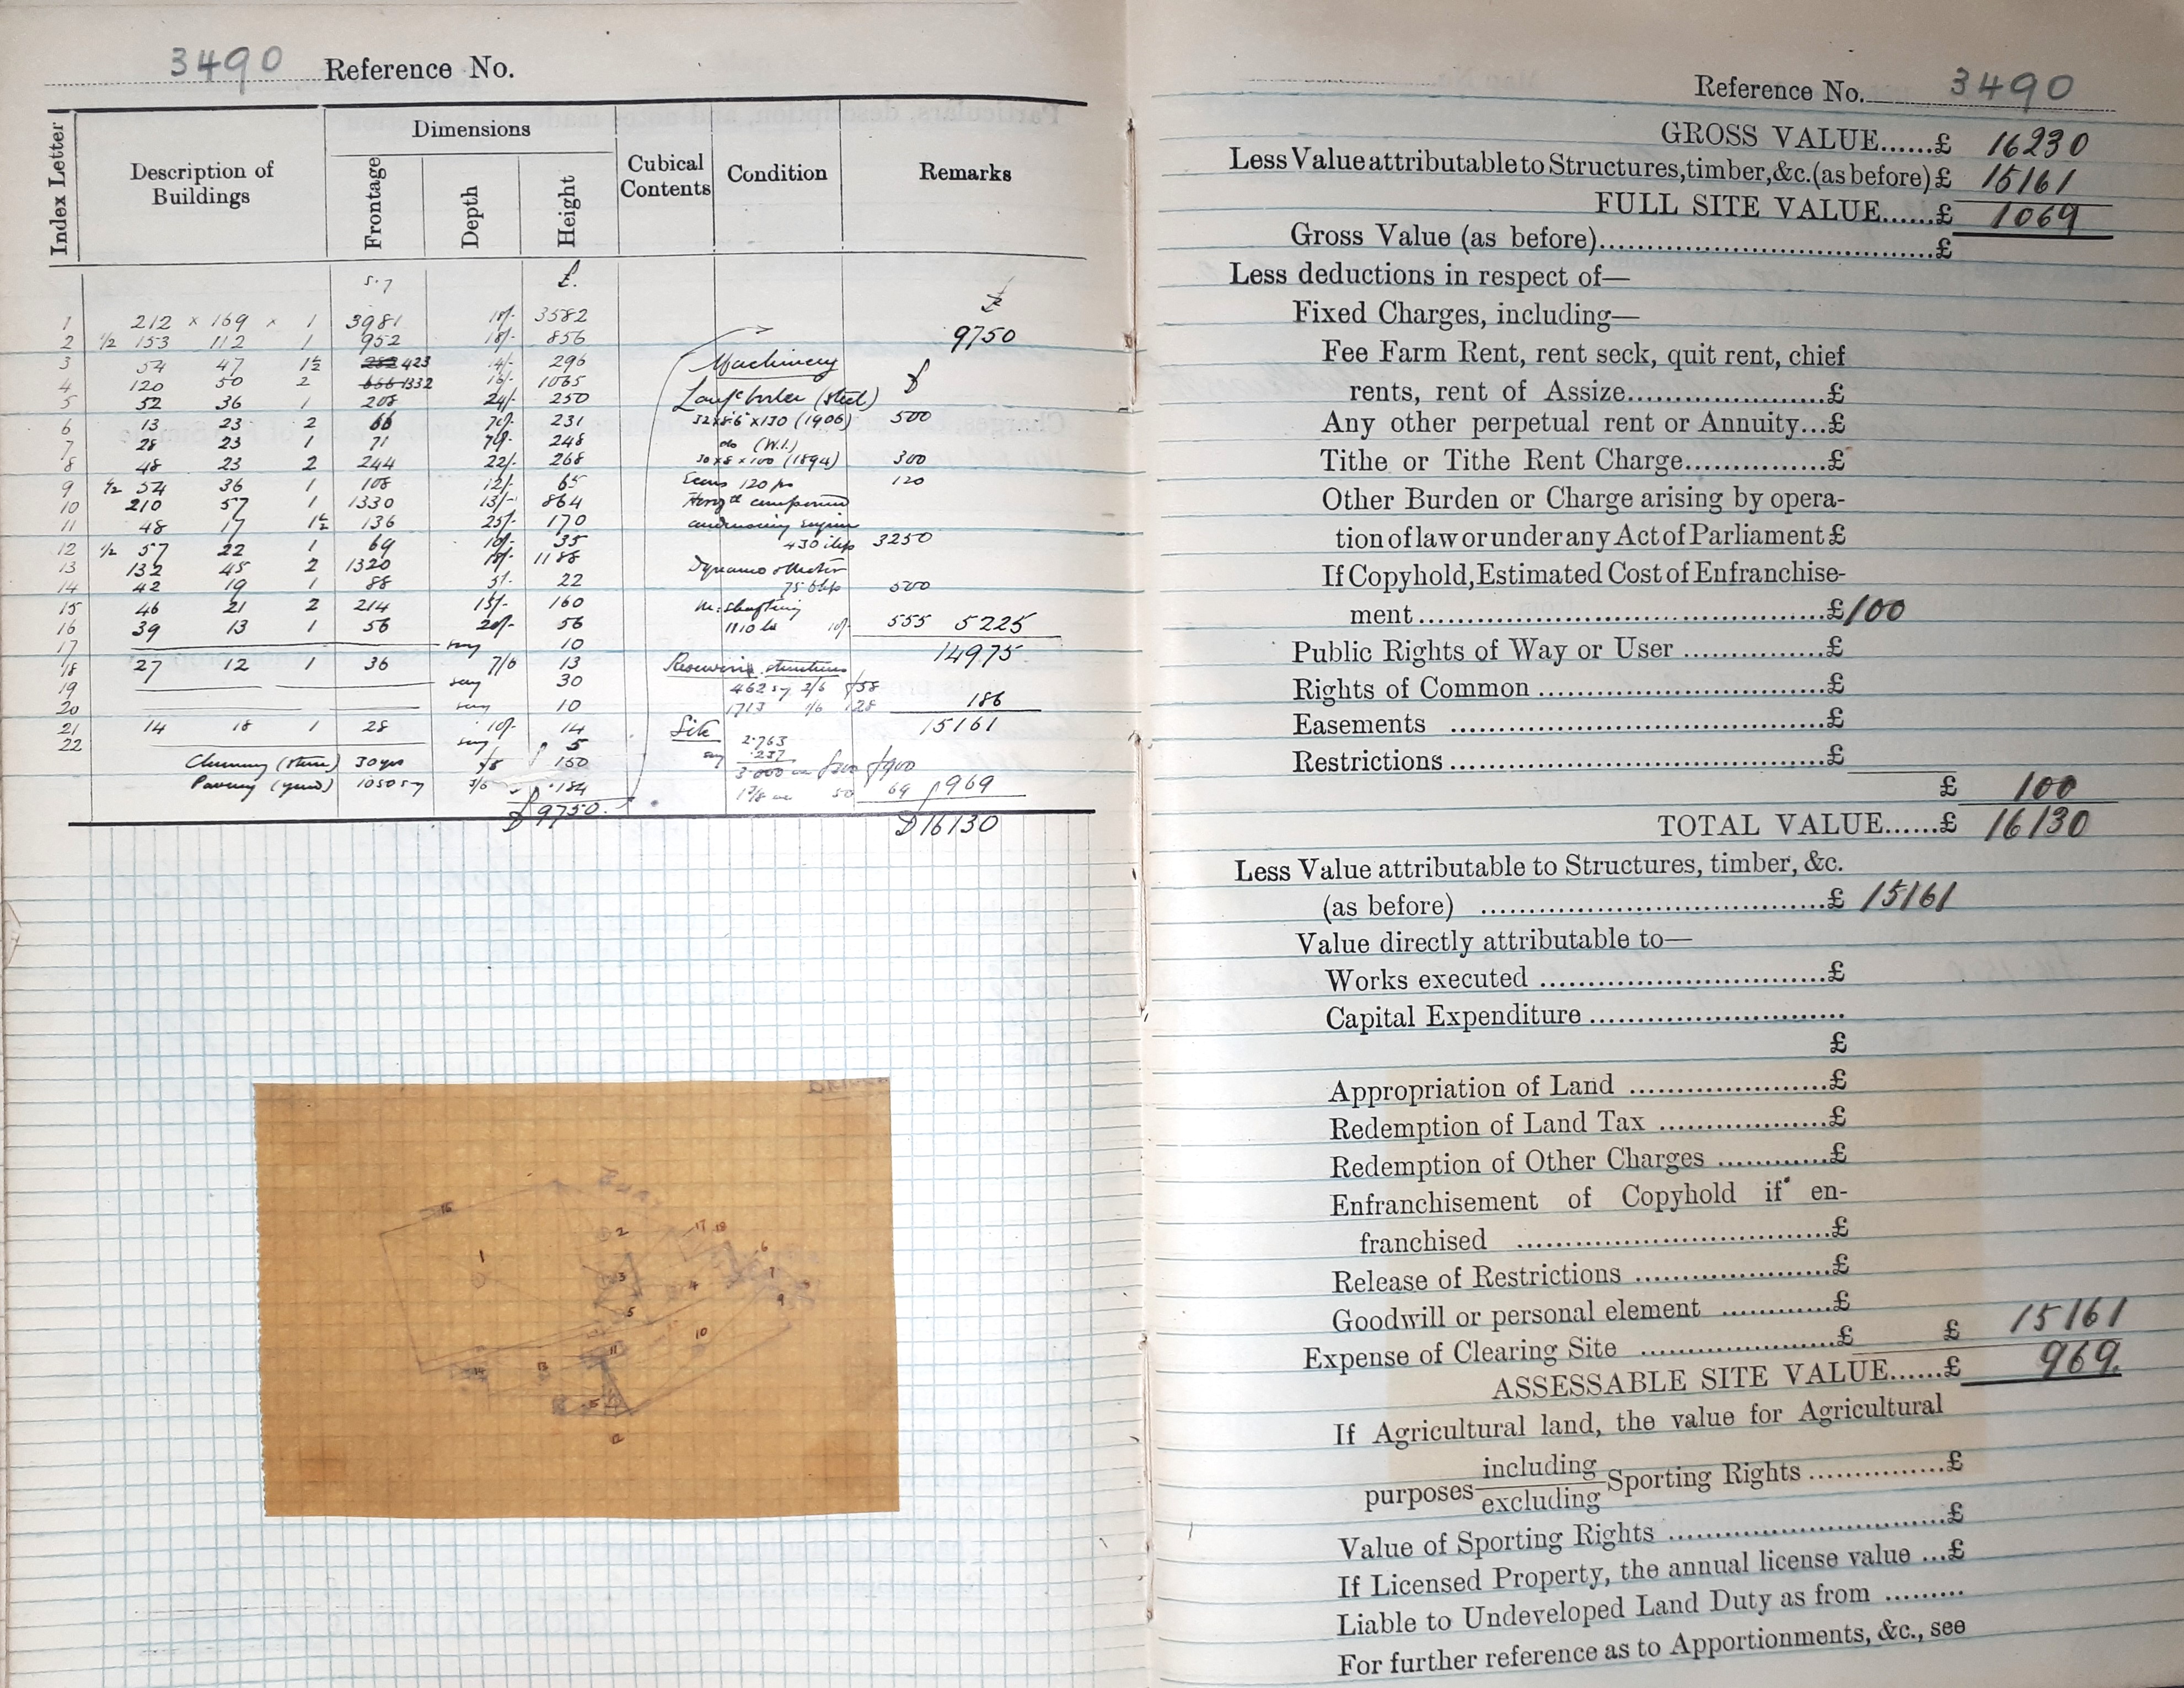 3490 Reference No.
Index Letter
Description of Buildings
Dimensions
Frontage
Depth
Height
Cubical Contents
Condition
Remarks
£.
1 212 × 169 × 1 3981 18/- 3582
2 ½ 153 112 1 952 18/- 856
3 54 47 1½ 423 14/- 296
4 120 50 2 1332 16/- 1065
5 52 36 1 208 24/- 250
6 13 23 2 66 70/- 231
7 28 23 1 71 70/- 248
8 48 23 2 244 22/- 268
9 ½ 54 36 1 108 12/- 65
10 210 57 1 1330 13/- 864
11 48 17 1½ 136 25/- 170
12 ½ 57 22 1 69 10/- 35
13 132 45 2 1320 18/- 1188
14 42 19 1 88 5/- 22
15 46 21 2 214 15/- 160
16 39 13 1 56 20/- 56
17 say 10
18 27 12 1 36 7/6 13
19 say 30
20 say 10
21 14 18 1 28 10/- 14
22 say 5
Chimney (stone) 30 yds 150
Paving (yard) 1050 sy 3/6 184
£9750.
£
9750
Machinery £
Lancs boiler (steel)
32×8.6×130 (1906) 500
do (W.I.)
30×8×100 (1894) 300
Econs 120 ps 120
compound
condensing engine
430 ihp 3250
Dynamo & Motor
75 bhp 500
M. shafting
1110 10/- 555 5225
14975
Reservoirs structures
462 sy 2/6 £58
1713 1/6 128 186
15161
Site 2.763
say .237
3.000 ac £300 £900
1 3/8 ac 50 69 £969
£16130
16
1
2
17 18
3
6
4
7
5
9
10
11
13
14
15
12
Reference No. 3490
GROSS VALUE......£ 16230
Less Value attributable to Structures, timber, &c. (as before) £ 15161
FULL SITE VALUE......£ 1069
Gross Value (as before)........................................£
Less deductions in respect of—
Fixed Charges, including—
Fee Farm Rent, rent seck, quit rent, chief
rents, rent of Assize........................£
Any other perpetual rent or Annuity...£
Tithe or Tithe Rent Charge................£
Other Burden or Charge arising by opera-
tion of law or under any Act of Parliament £
If Copyhold, Estimated Cost of Enfranchise-
ment................................................£100
Public Rights of Way or User ..................£
Rights of Common ..................................£
Easements ..............................................£
Restrictions..............................................£
£ 100
TOTAL VALUE......£ 16130
Less Value attributable to Structures, timber, &c.
(as before) ........................................£ 15161
Value directly attributable to—
Works executed ..................................£
Capital Expenditure ..............................
£
Appropriation of Land ........................£
Redemption of Land Tax ....................£
Redemption of Other Charges ............£
Enfranchisement of Copyhold if en-
franchised ......................................£
Release of Restrictions ........................£
Goodwill or personal element ............£
Expense of Clearing Site ........................£ £ 15161
ASSESSABLE SITE VALUE......£ 969.
If Agricultural land, the value for Agricultural
purposes including
excluding Sporting Rights ................£
Value of Sporting Rights ................................£
If Licensed Property, the annual license value ...£
Liable to Undeveloped Land Duty as from .........
For further reference as to Apportionments, &c., see